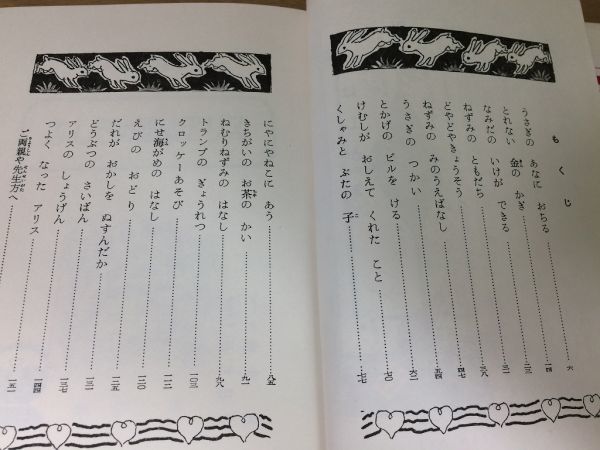 もくじ
うさぎの あなに おちる……六
とれない 金の かぎ……一四
なみだの いけが できる……二三
ねずみの ともだち……三一
どやどやきょうそう……三八
ねずみの みのうえばなし……四七
うさぎの つかい……五四
とかげの ビルを ける……六二
けむしが おしえて くれた こと……
くしゃみと ぶたの 子……七七
にやにやねこに あう……八五
きちがいの お茶の かい……九一
ねむりねずみの はなし……九八
トランプの ぎょうれつ……一〇三
クロッケーあそび……
にせ海がめの はなし……
えびの おどり……
だれが おかしを ぬすんだか……
どうぶつの さいばん……
アリスの しょうげん……
つよく なった アリス……一四四
ご両親や先生方へ……一五一